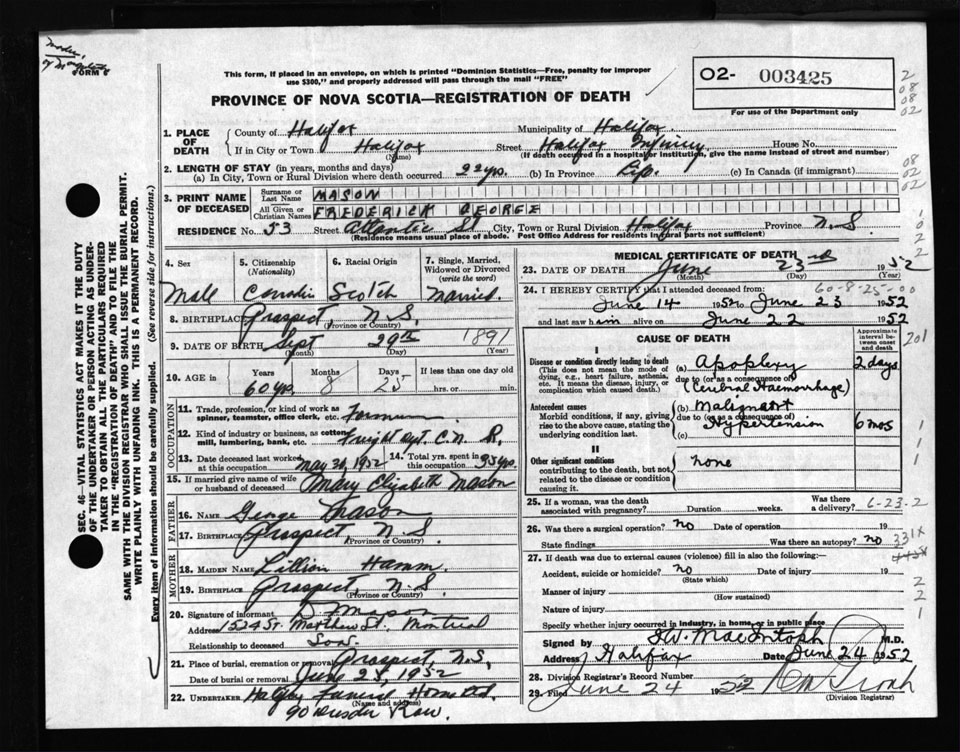 FORM 6
This form, if placed in an envelope, on which is printed "Dominion Statistics—Free, penalty for improper
use $300," and properly addressed will pass through the mail "FREE"
PROVINCE OF NOVA SCOTIA—REGISTRATION OF DEATH
02- 003425
For use of the Department only
2
08
08
02
1. PLACE OF DEATH
County of Halifax
Municipality of Halifax
If in City or Town Halifax (Name) Street Halifax Infirmary House No.
(If death occurred in a hospital or institution, give the name instead of street and number)
2. LENGTH OF STAY (in years, months and days)
(a) In City, Town or Rural Division where death occurred yrs. (b) In Province Life (c) In Canada (if immigrant)
08
02
02
3. PRINT NAME OF DECEASED
Surname or Last Name MASON
All Given or Christian Names FREDERICK GEORGE
RESIDENCE No. 53 Street Atlantic St City, Town or Rural Division Halifax Province N.S.
(Residence means usual place of abode. Post Office Address for residents in rural parts not sufficient)
4. Sex
Male
5. Citizenship (Nationality)
Canadian
6. Racial Origin
Scotch
7. Single, Married, Widowed or Divorced (write the word)
Married.
8. BIRTHPLACE Prospect, N.S.
(Province or Country)
9. DATE OF BIRTH Sept 29th 1891
(Month) (Day) (Year)
10. AGE in Years Months Days If less than one day old
60 yrs. 8 25 hrs. or min.
OCCUPATION
11. Trade, profession, or kind of work as spinner, teamster, office clerk, etc.
12. Kind of industry or business, as cotten mill, lumbering, bank, etc. Freight Dpt. C.N.R.
13. Date deceased last worked at this occupation May 30, 1952 14. Total yrs. spent in this occupation yrs.
15. If married give name of wife or husband of deceased Mary Elizabeth Mason
FATHER
16. NAME George Mason
17. BIRTHPLACE Prospect, N.S.
(Province or Country)
MOTHER
18. MAIDEN NAME Lillian Hamm
19. BIRTHPLACE Prospect N.S.
(Province or Country)
20. Signature of informant D. Mason
Address 1524 St. Matthew St. Montreal
Relationship to deceased Son
21. Place of burial, cremation or removal Prospect, N.S.
Date of burial or removal June 25, 1952
22. UNDERTAKER Halifax Funeral Home Ltd.
(Name and address)
90 Row.
MEDICAL CERTIFICATE OF DEATH
23. DATE OF DEATH June 23rd 1952
(Month) (Day) (Year)
60-8-25-00
24. I HEREBY CERTIFY that I attended deceased from:
June 14 1952 to June 23 1952
and last saw him alive on June 22 1952
CAUSE OF DEATH
Approximate interval between onset and death
201
I
Disease or condition directly leading to death
(This does not mean the mode of dying, e.g., heart failure, asthenia, etc. It means the disease, injury, or complication which caused death.)
(a) Apoplexy 2 days
due to (or as a consequence of)
(Cerebral Haemorrhage)
Antecedent causes
Morbid conditions, if any, giving rise to the above cause, stating the underlying condition last.
(b) Malignant
due to (or as a consequence of)
Hypertension 6 mos
(c)
II
Other significant conditions
contributing to the death, but not related to the disease or condition causing it.
none
25. If a woman, was the death associated with pregnancy? Duration weeks. Was there a delivery? 6-23-2
26. Was there a surgical operation? no Date of operation 19
State findings Was there an autopsy? no 331X
27. If death was due to external causes (violence) fill in also the following:—
Accident, suicide or homicide? no Date of injury 19
(State which)
Manner of injury
(How sustained)
Nature of injury
Specify whether injury occurred in Industry, in home, or in public place
Signed by W. MacIntosh M.D.
Address Halifax Date June 24 1952
28. Division Registrar's Record Number
29. Filed June 24 1952
(Division Registrar)
SEC. 46—VITAL STATISTICS ACT MAKES IT THE DUTY
OF THE UNDERTAKER OR PERSON ACTING AS UNDER-
TAKER TO OBTAIN ALL THE PARTICULARS REQUIRED
IN THE "REGISTRATION OF DEATH" AND TO FILE THE
SAME WITH THE DIVISION REGISTRAR WHO SHALL ISSUE THE BURIAL PERMIT.
WRITE PLAINLY WITH UNFADING INK. THIS IS A PERMANENT RECORD.
Every item of information should be carefully supplied. (See reverse side for instructions.)